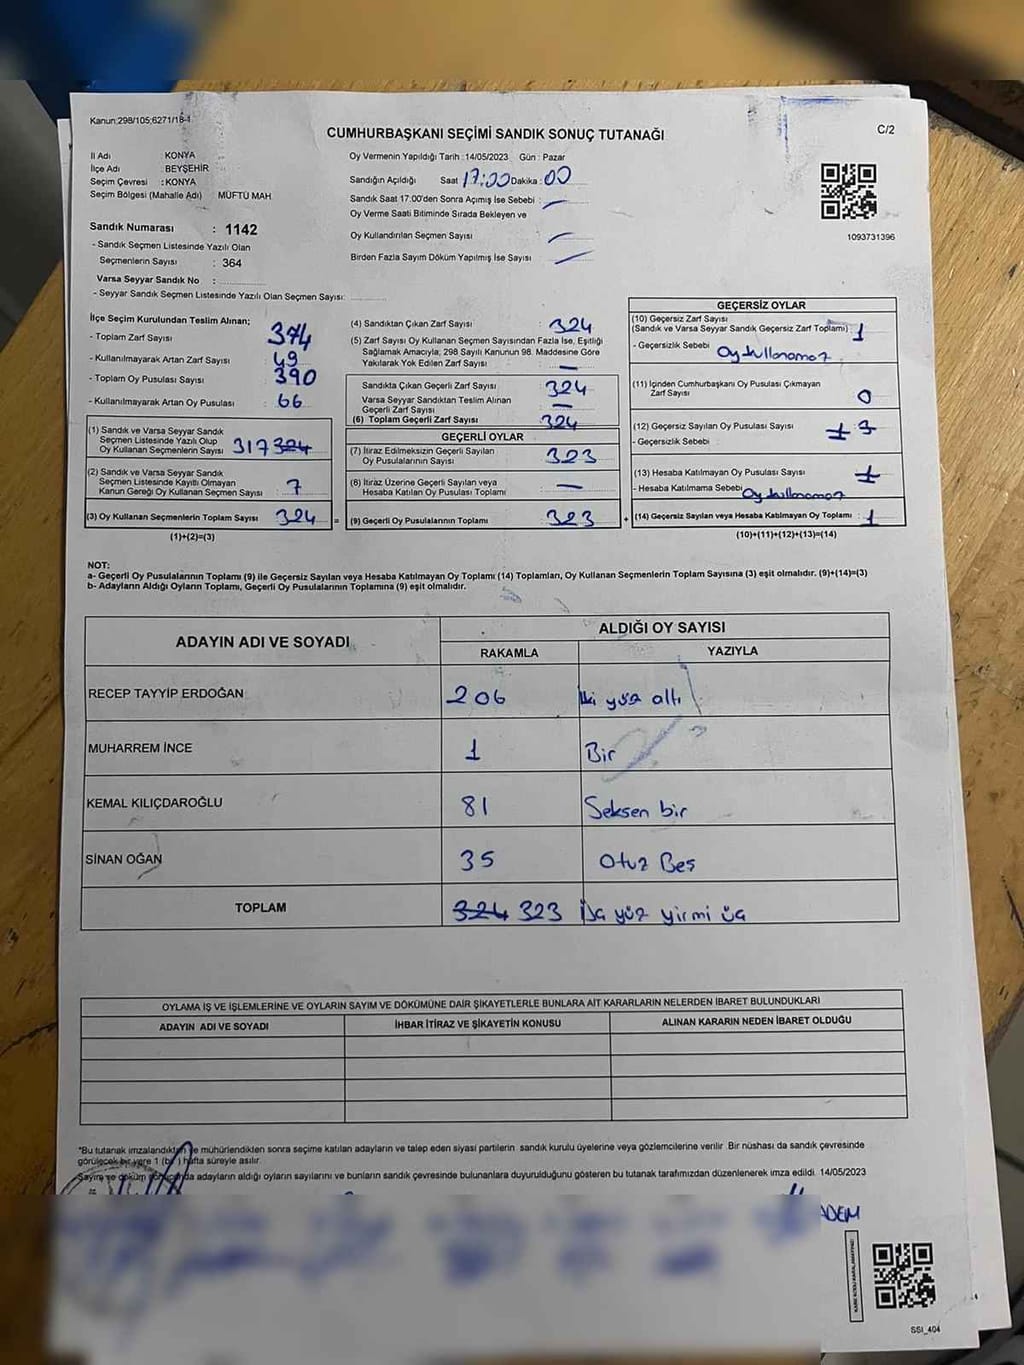 Kanun;298/105;6271/18-1
CUMHURBAŞKANI SEÇİMİ SANDIK SONUÇ TUTANAĞI
C/2
İl Adı : KONYA
İlçe Adı : BEYŞEHİR
Seçim Çevresi : KONYA
Seçim Bölgesi (Mahalle Adı) MÜFTÜ MAH
Sandık Numarası : 1142
- Sandık Seçmen Listesinde Yazılı Olan
Seçmenlerin Sayısı : 364
Varsa Seyyar Sandık No :
- Seyyar Sandık Seçmen Listesinde Yazılı Olan Seçmen Sayısı:
Oy Vermenin Yapıldığı Tarih :14/05/2023 Gün : Pazar
Sandığın Açıldığı Saat 17:00 Dakika : 00
Sandık Saat 17.00'den Sonra Açımış İse Sebebi :
Oy Verme Saati Bitiminde Sırada Bekleyen ve
Oy Kullandırılan Seçmen Sayısı
Birden Fazla Sayım Döküm Yapılmış İse Sayısı
1093731396
İlçe Seçim Kurulundan Teslim Alınan;
- Toplam Zarf Sayısı : 374
- Kullanılmayarak Artan Zarf Sayısı : 49
- Toplam Oy Pusulası Sayısı : 390
- Kullanılmayarak Artan Oy Pusulası : 66
(1) Sandık ve Varsa Seyyar Sandık
Seçmen Listesinde Yazılı Olup
Oy Kullanan Seçmenlerin Sayısı 317 324
(2) Sandık ve Varsa Seyyar Sandık
Seçmen Listesinde Kayıtlı Olmayan
Kanun Gereği Oy Kullanan Seçmen Sayısı 7
(3) Oy Kullanan Seçmenlerin Toplam Sayısı 324 =
(1)+(2)=(3)
(4) Sandıktan Çıkan Zarf Sayısı : 324
(5) Zarf Sayısı Oy Kullanan Seçmen Sayısından Fazla İse, Eşitliği
Sağlamak Amacıyla; 298 Sayılı Kanunun 98. Maddesine Göre
Yakılarak Yok Edilen Zarf Sayısı
Sandıkta Çıkan Geçerli Zarf Sayısı 324
Varsa Seyyar Sandıktan Teslim Alınan
Geçerli Zarf Sayısı
(6) Toplam Geçerli Zarf Sayısı 324
GEÇERLİ OYLAR
(7) İtiraz Edilmeksizin Geçerli Sayılan
Oy Pusulalarının Sayısı 323
(8) İtiraz Üzerine Geçerli Sayılan veya
Hesaba Katılan Oy Pusulası Toplamı
(9) Geçerli Oy Pusulalarının Toplamı 323 +
GEÇERSİZ OYLAR
(10) Geçersiz Zarf Sayısı
(Sandık ve Varsa Seyyar Sandık Geçersiz Zarf Toplamı) 1
- Geçersizlik Sebebi :
(11) İçinden Cumhurbaşkanı Oy Pusulası Çıkmayan
Zarf Sayısı 0
(12) Geçersiz Sayılan Oy Pusulası Sayısı
- Geçersizlik Sebebi :
(13) Hesaba Katılmayan Oy Pusulası Sayısı 1
- Hesaba Katılmama Sebebi
(14) Geçersiz Sayılan veya Hesaba Katılmayan Oy Toplamı : 1
(10)+(11)+(12)+(13)=(14)
NOT:
a- Geçerli Oy Pusulalarının Toplamı (9) ile Geçersiz Sayılan veya Hesaba Katılmayan Oy Toplamı (14) Toplamları, Oy Kullanan Seçmenlerin Toplam Sayısına (3) eşit olmalıdır. (9)+(14)=(3)
b- Adayların Aldığı Oyların Toplamı, Geçerli Oy Pusulalarının Toplamına (9) eşit olmalıdır.
ADAYIN ADI VE SOYADI
ALDIĞI OY SAYISI
RAKAMLA YAZIYLA
RECEP TAYYİP ERDOĞAN 206 İki yüz altı
MUHARREM İNCE 1 Bir
KEMAL KILIÇDAROĞLU 81 Seksen bir
SİNAN OĞAN 35 Otuz Beş
TOPLAM 324 323 Üç yüz yirmi üç
OYLAMA İŞ VE İŞLEMLERİNE VE OYLARIN SAYIM VE DÖKÜMÜNE DAİR ŞİKAYETLERLE BUNLARA AİT KARARLARIN NELERDEN İBARET BULUNDUKLARI
ADAYIN ADI VE SOYADI İHBAR İTİRAZ VE ŞİKAYETİN KONUSU ALINAN KARARIN NEDEN İBARET OLDUĞU
*Bu tutanak imzalandıktan ve mühürlendikten sonra seçime katılan adayların ve talep eden siyasi partilerin sandık kurulu üyelerine veya gözlemcilerine verilir. Bir nüshası da sandık çevresinde
görülecek bir yere 1 (bir) hafta süreyle asılır.
Sayım ve döküm adayların aldığı oyların sayılarını ve bunların sandık çevresinde bulunanlara duyurulduğunu gösteren bu tutanak tarafımızdan düzenlenerek imza edildi. 14/05/2023
ADEM
SSI_404